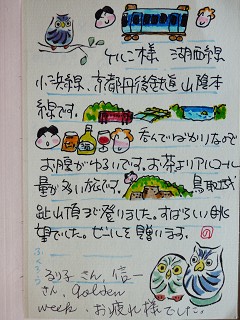 様 湖西線
小浜線、京都丹後鉄道 山陰本
線です。
呑んでばかりなので
お腹がゆるいです。お茶よりアルコール
量が多い旅です。 鳥取城
趾山頂まで登りました。すばらしい眺
望でした。ビールを贈ります。
ふくろう
るり子さん、信一
さん、golden
week、お疲れ様でした。